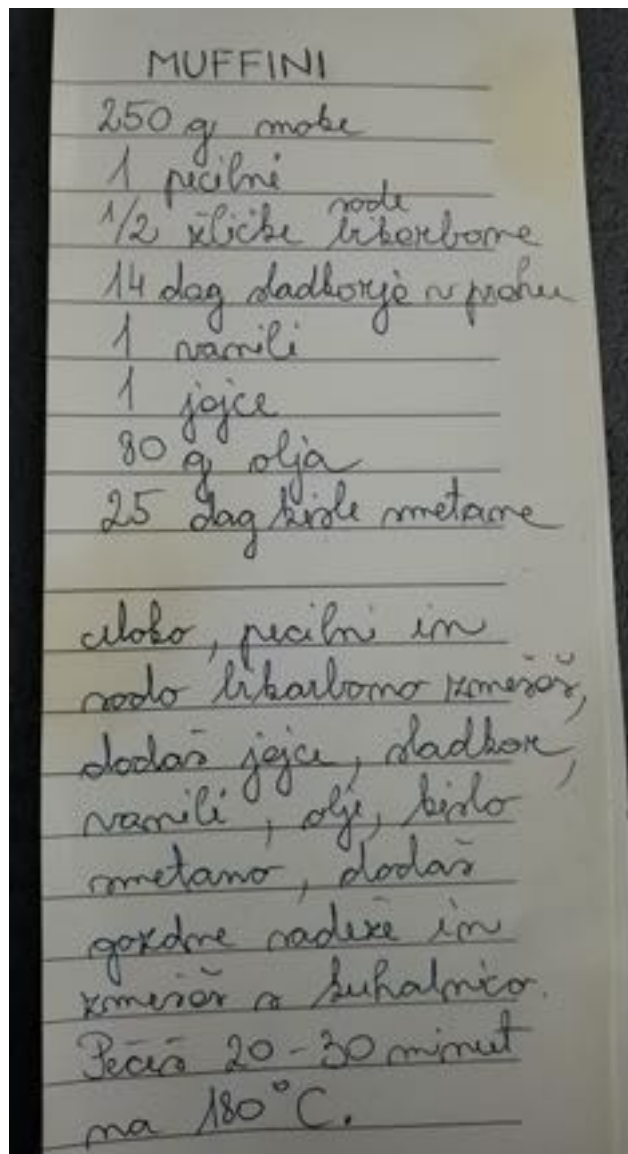 MUFFINI
250 g moke
1 pecilni
1/2 žličke sode bikarbone
14 dag sladkorja v prahu
1 vanili
1 jajce
80 g olja
25 dag kisle smetane
Moko, pecilni in
sodo bikarbono zmešaš,
dodaš jajce, sladkor,
vanili, olje, kislo
smetano, dodaš
gozdne sadeže in
zmešaš s kuhalnico.
Pečeš 20-30 minut
na 180°C.